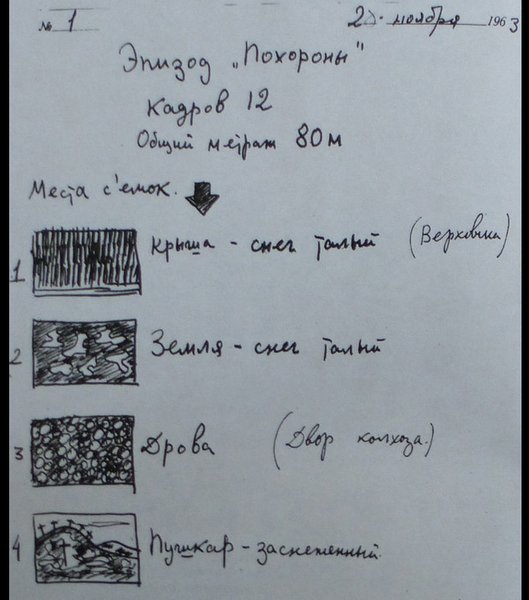 № 1
ноября 1963
Эпизод „Похороны"
Кадров 12
Общий метраж 80 м
Места с'емок.
1 Крыша - снег талый (Верховина)
2 Земля - снег талый
3 Дрова (Двор колхоза.)
4 Пушкар - заснеженный.